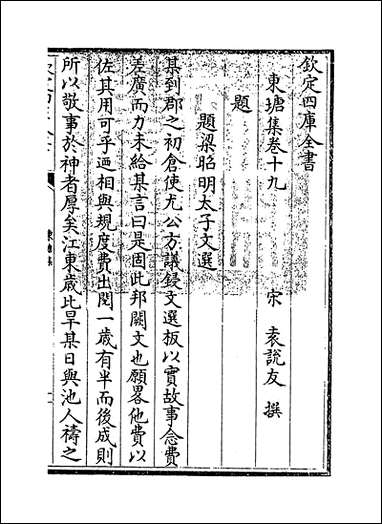 欽定四庫全書
東塘集卷十九
宋 袁說友 撰
題
題梁昭明太子文選
某到郡之初倉使尤公方議鋟文選板以實故事念費
差廣而力未給某言曰是固此邦闕文也願畧他費以
佐其用可乎迺相與規度費出閲一歳有半而後成則
所以敬事於神者厚矣江東歳比旱某日與池人禱之